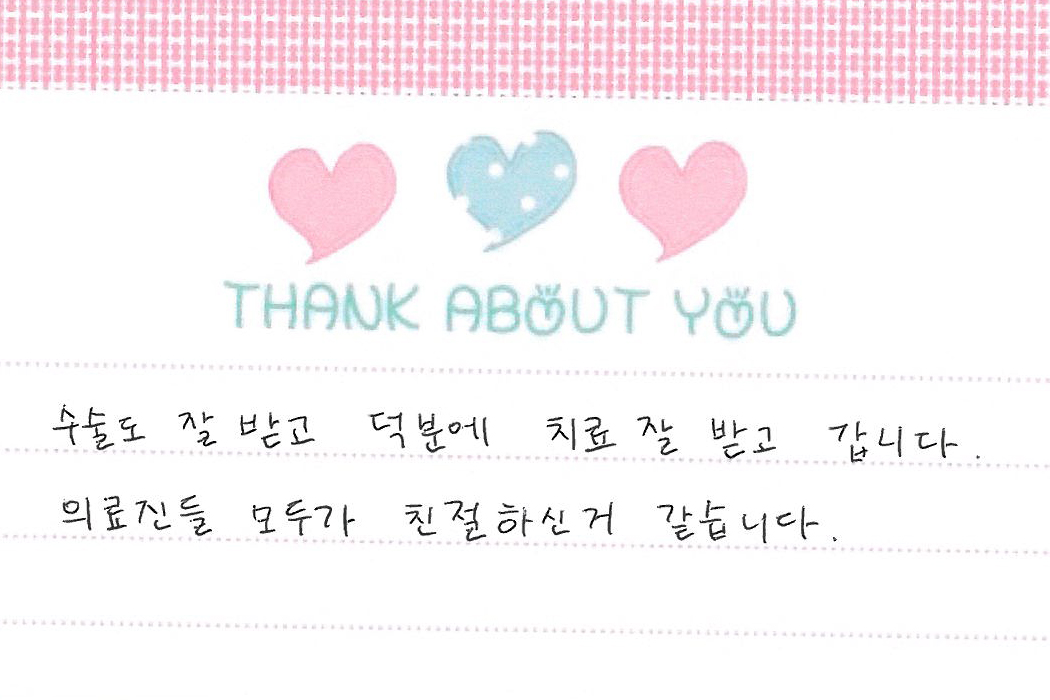 THANK ABOUT YOU
수술도 잘 받고 덕분에 치료 잘 받고 갑니다.
의료진들 모두가 친절하신거 같습니다.